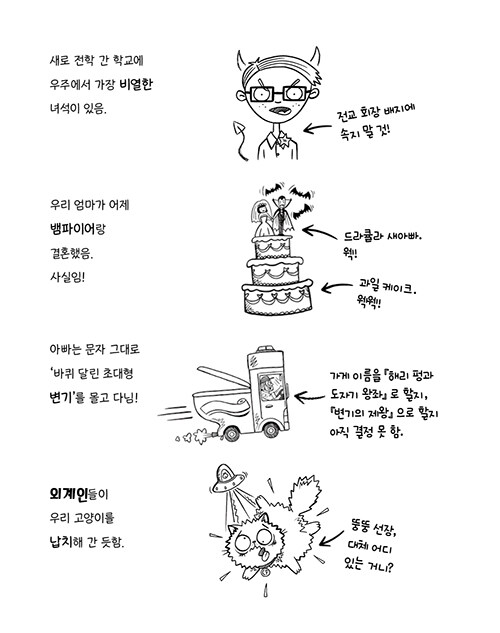 새로 전학 간 학교에
우주에서 가장 비열한
녀석이 있음.
전교 회장 배지에
속지 말 것!
우리 엄마가 어제
뱀파이어랑
결혼했음.
사실임!
드라큘라 새아빠.
웩!!
과일 케이크.
웩웩!!
아빠는 문자 그대로
‘바퀴 달린 초대형
변기’를 몰고 다님!
가게 이름을 『해리 펑과
도자기 왕좌』로 할지,
『변기의 제왕』으로 할지
아직 결정 못 함.
외계인들이
우리 고양이를
납치해 간 듯함.
뚱뚱 선장,
대체 어디
있는 거니?